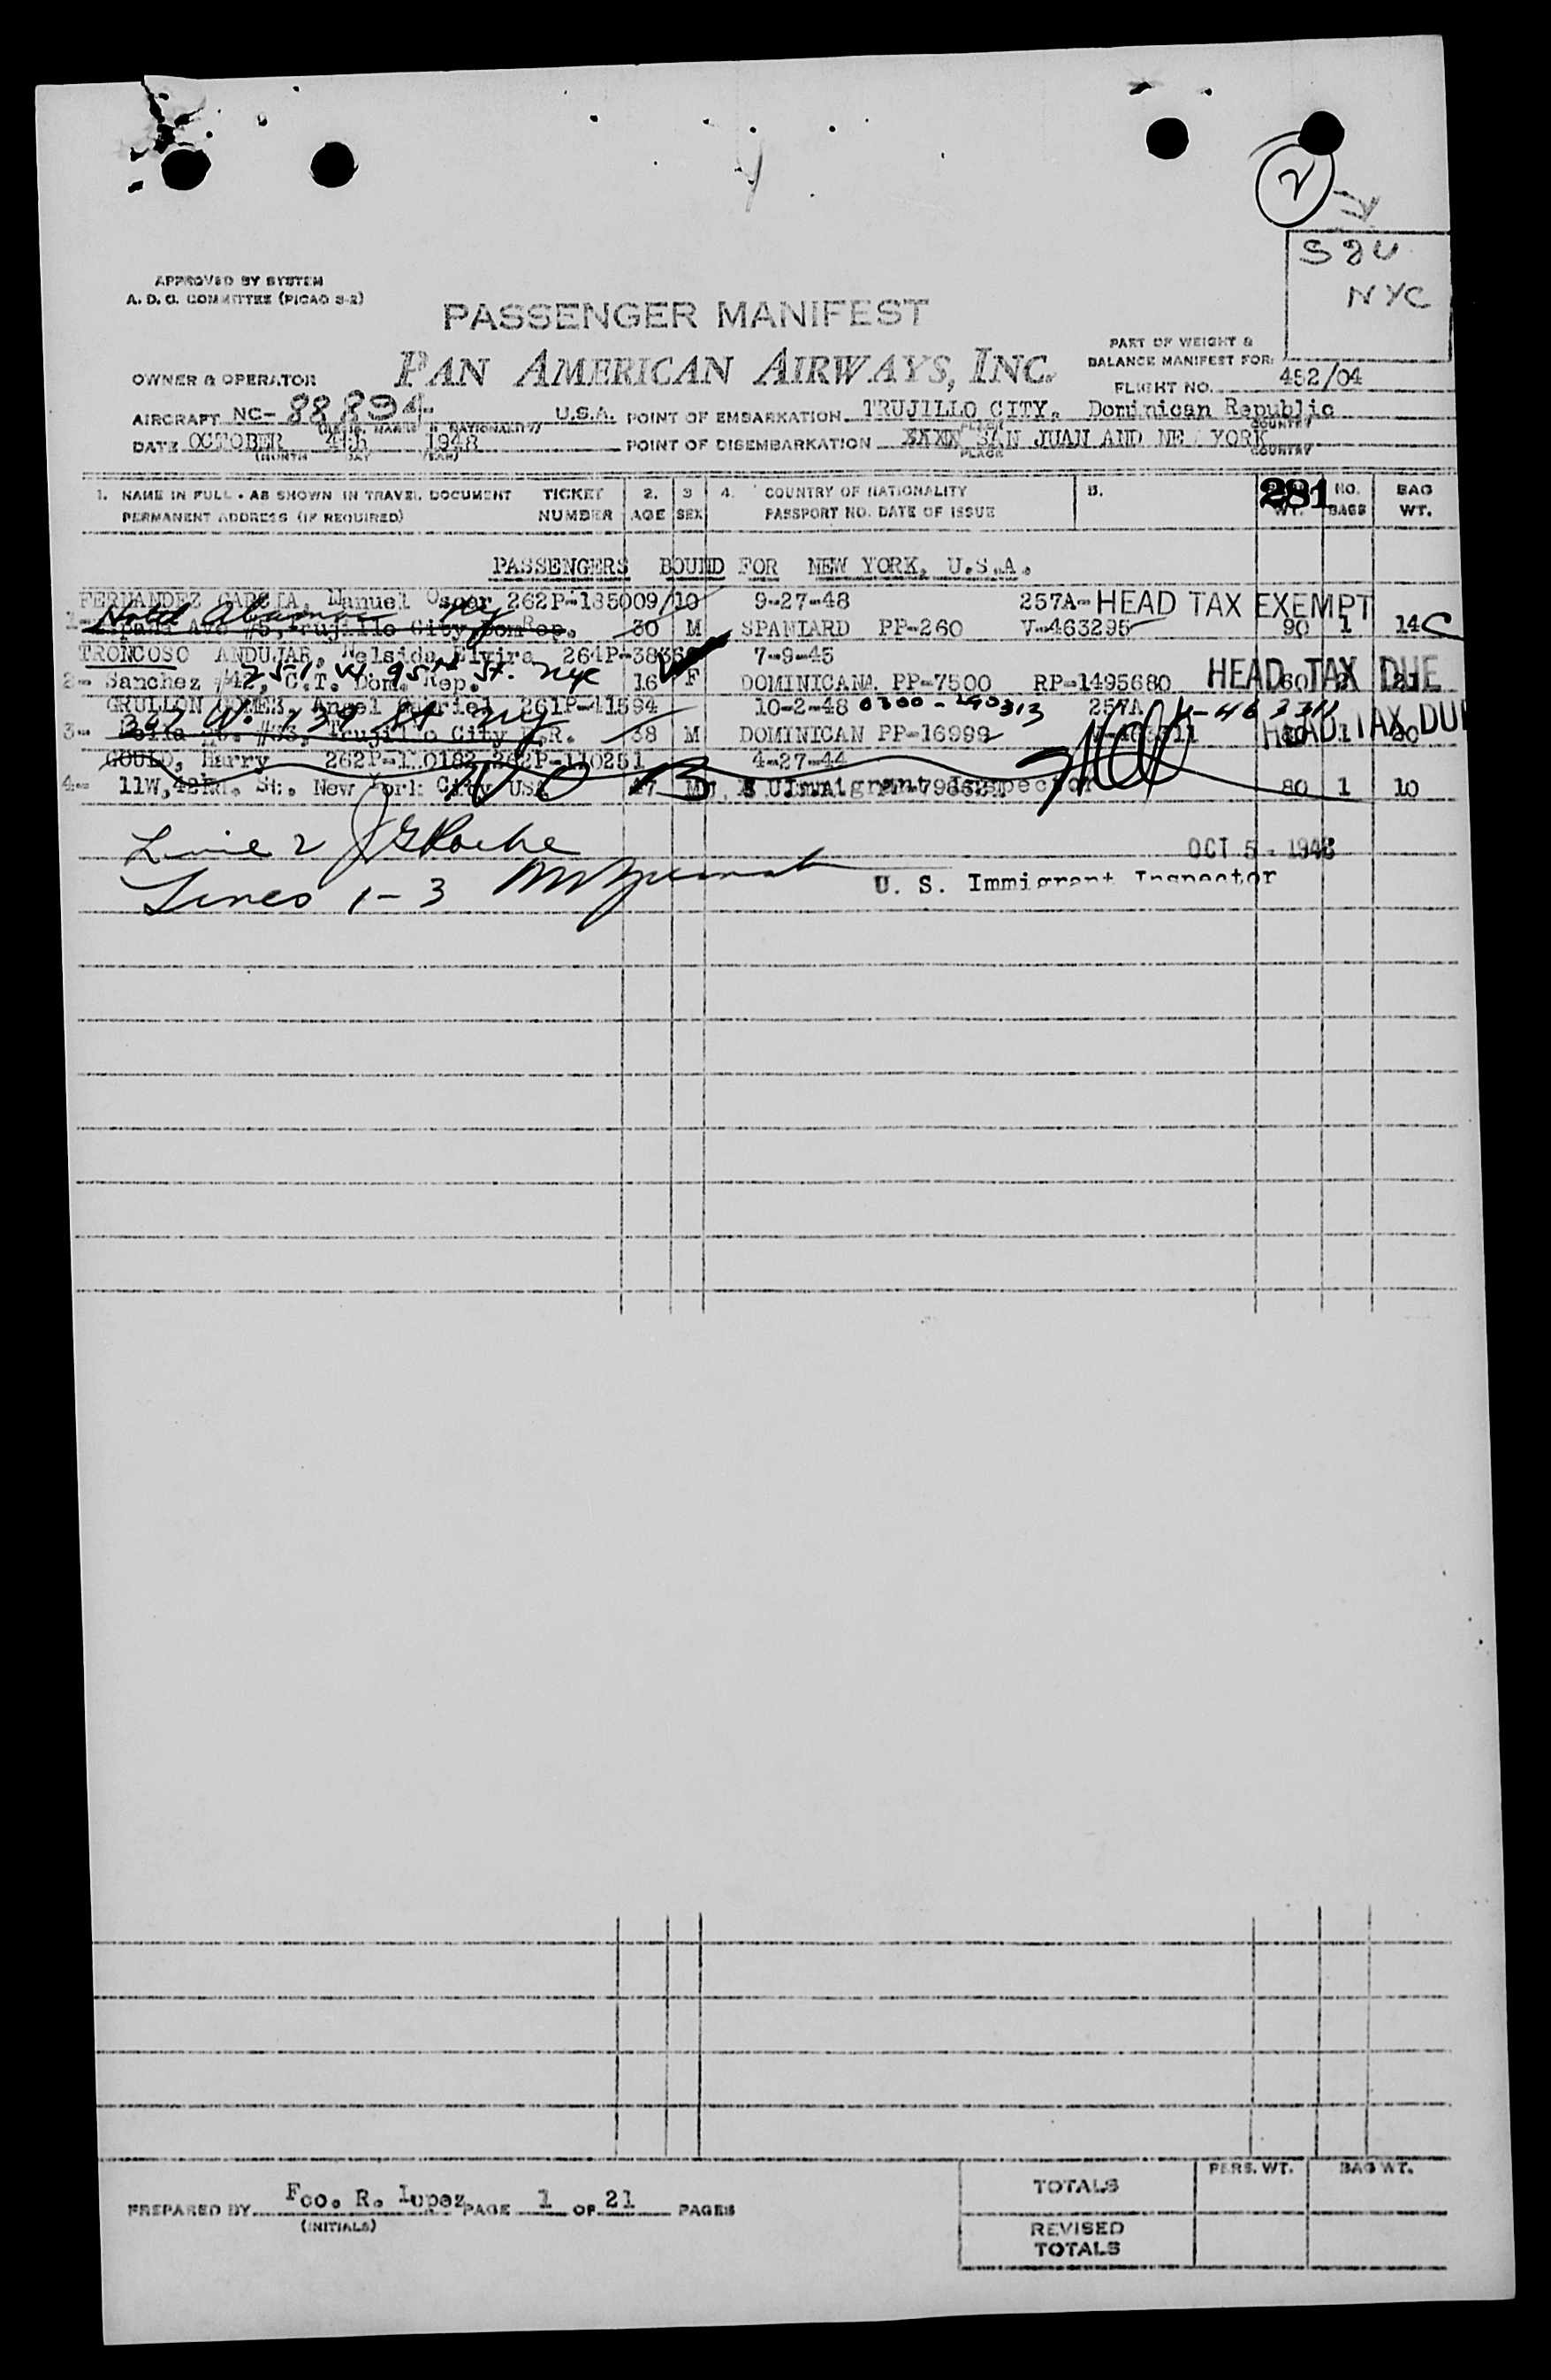 2
S J U
NYC
APPROVED BY SYSTEM
A. D. C. COMMITTEE (PICAO S-2)
PASSENGER MANIFEST
PART OF WEIGHT &
BALANCE MANIFEST FOR:
OWNER & OPERATOR PAN AMERICAN AIRWAYS, INC.
FLIGHT NO. 452/04
AIRCRAFT NC- 88894 U.S.A. POINT OF EMBARKATION TRUJILLO CITY, Dominican Republic
PLACE COUNTRY
DATE OCTOBER 4th 1948 POINT OF DISEMBARKATION XXXX SAN JUAN AND NE YORK
(MONTH DAY YEAR) PLACE COUNTRY
1. NAME IN FULL - AS SHOWN IN TRAVEL DOCUMENT TICKET 2. 3 4. COUNTRY OF NATIONALITY 5. 281 NO. BAG
PERMANENT ADDRESS (IF REQUIRED) NUMBER AGE SEX PASSPORT NO. DATE OF ISSUE WT. BAGS WT.
PASSENGERS BOUND FOR NEW YORK, U.S.A.
FERNANDEZ GARCIA, Manuel Oscar 262P-185009/10 9-27-48 257A- HEAD TAX EXEMPT
1- #5, Trujillo City, Dom Rep. 30 M SPANIARD PP-260 V-463295 90 1 14 C
TRONCOSO ANDUJAR, Nelsida Elvira 264P-3836 7-9-45
2- Sanchez #42, C.T. Dom. Rep. 251 W. 95th St. NYC 16 F DOMINICANA PP-7500 RP-1495680 HEAD TAX DUE
GRULLON GOMEZ, Angel 261P-41594 10-2-48 0300-190313 257A V-463311
3- #33, Trujillo City D.R. 38 M DOMINICAN PP-16999 HEAD TAX DUE
GOULD, Harry 262P-110182 262P-110251 4-27-44
4- 11W, 42nd. St. New York City USA 47 M U. S. Immigrant Inspector 80 1 10
Line 2 J G Roche
OCT 5 - 1948
Lines 1-3 U. S. Immigrant Inspector
PREPARED BY Fco. R. Lopez PAGE 1 OF 21 PAGES
(INITIALS)
PERS. WT. BAG WT.
TOTALS
REVISED
TOTALS